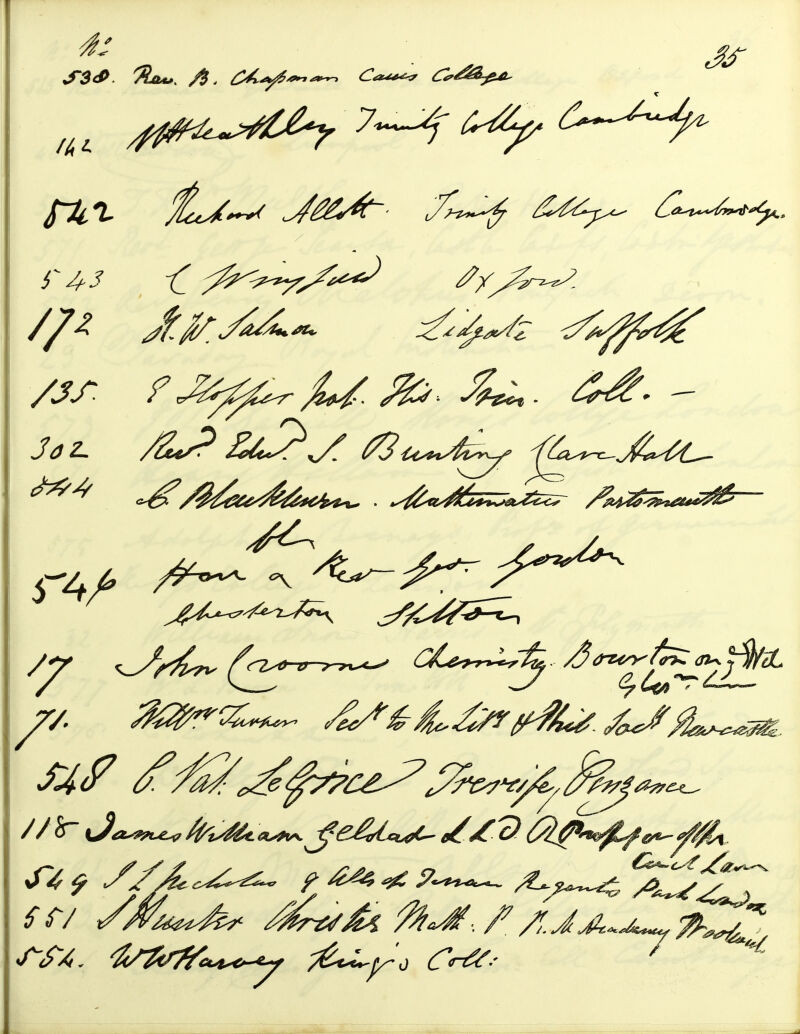 No
35
538. Rev. B. Chapman Caius College
142 Trinity College Cambridge
542 Richard Allott. Trinity College Cambridge.
543 C Wingfield Oxford.
172 H. W. Salmon Lidgate Suffolk
135. E Hopper Nat. His. Trin. Coll. –
302 Revd. Edwd. S. Bunting Clare Hall
544 C. Blackburn. Mathematics Portsmouth
546 Hon Rev Geo. Gordon
Chesterton Stilton
17 John Croome Chemistry. Bourton on
71. Willm. Turner Secy to the Lity & Phil. Socy Newcastle
548 C. Val. LeGrice Trereife, Penzance
118 James William Geldart LLD R Professor of the
Civil Law
549 Terrace Regents Park London
551 S Hunter Christie Math: P. R. M. Academy Woolwich
554. WWHarvey King's Coll: